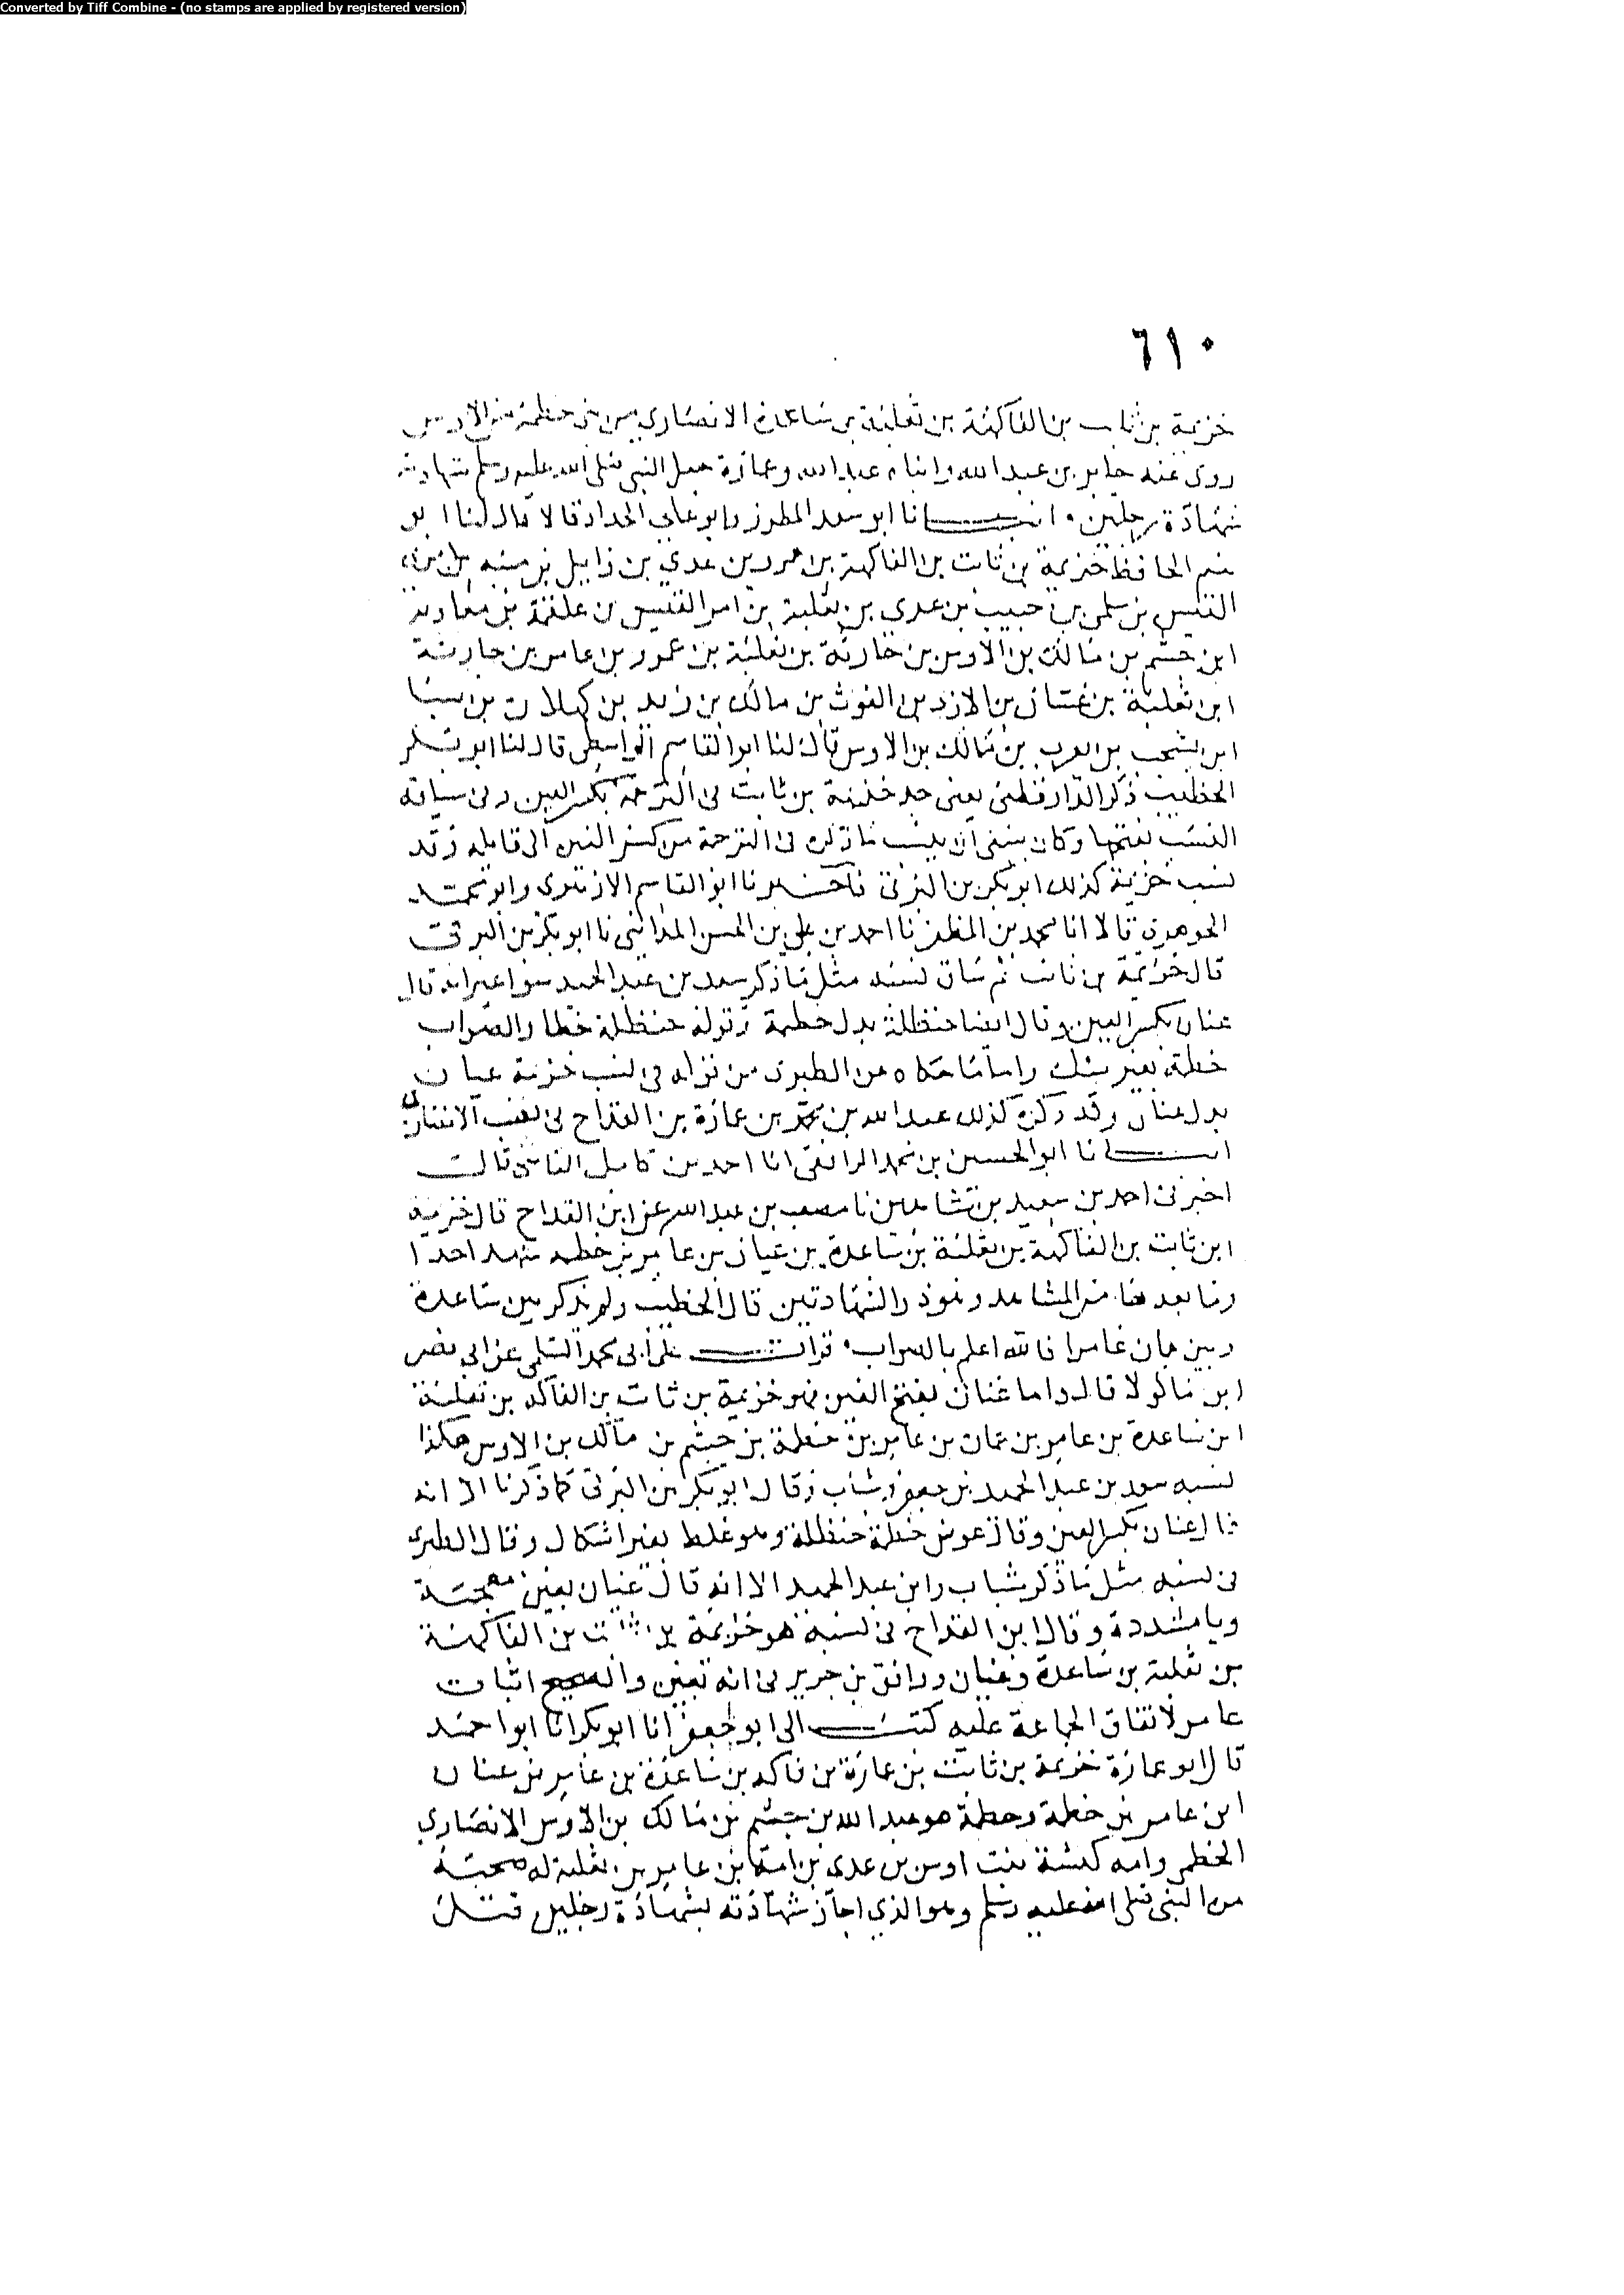 Converted by Tiff Combine - (no stamps are applied by registered version)
٦١٠
خزيمة بن ثابت بن الفاكهة بن ثعلبة بن ساعدة الانصاري من بني خطمة من الاوس
روى عنه جابر بن عبد الله وابناه عبد الله وعمارة جعل النبي صلى الله عليه وسلم شهادته
شهادة رجلين . انبانا ابو سعد المطرز وابو علي الحداد قالا قال لنا ابو
نعيم الحافظ خزيمة بن ثابت بن الفاكهة بن عمرو بن عدي بن وايل بن منبه بن امرء
القيس بن سلمى بن حبيب بن عدى بن ثعلبة بن امر القيس بن علقمة بن معاوية
ابن جشم بن مالك بن الاوس بن حارثة بن ثعلبة بن عمرو بن عامر بن حارثة
ابن ثعلبة بن غسان بن الازد بن الغوث بن مالك بن زيد بن كهلان بن سبا
ابن يشجب بن يعرب بن مالك بن الاوس قال لنا ابو القاسم الواسطي قال لنا ابو بكر
الخطيب ذكر الدارقطنى يعنى جد خزيمة بن ثابت فى الترجمة بكسر العين وفى سياقه
النسب بفتحها وكان ينبغى ان ما ذكره فى الترجمة من كسر العين الى قايله وقد
نسب خزيمة كذلك ابو بكر بن البرقى فاخبرنا ابو القاسم الازهرى وابو محمد
الجوهرى قالا انا محمد بن المظفر نا احمد بن علي بن الحسن المدائني نا ابو بكر بن البرقى
قال خزيمة بن ثابت ثم ساق نسبه مثل ما ذكر سعد بن عبد الحميد سوا غير انه قال
عنان بكسر العين وقال ايضا حنظلة بدل خطمة وقوله حنظلة خطا والصواب
خطمة بغير شك واما ما حكاه عن الطبرى من قوله فى نسب خزيمة غيان
بدل عنان وقد ذكره كذلك عبد الله بن محمد بن عمارة بن القداح فى نسب الانصار
انبانا ابو الحسين بن محمد الرافقى انا احمد بن كامل القاضى قالت
اخبرنى احمد بن سعيد بن شاهين نا مصعب بن عبد الله عن ابن القداح قال خزيمة
ابن ثابت بن الفاكهة بن ثعلبة بن ساعدة بن غيان بن عامر بن خطمه شهد احدا
وما بعدها من المشاهد وهو ذو الشهادتين قال الخطيب ولم يذكر بين ساعدة
وبين غيان عامرا فالله اعلم بالصواب . قرات على ابى محمد السلمى عن ابى نصر
ابن ماكولا قال واما عنان بفتح العين فهو خزيمة بن ثابت بن الفاكه بن ثعلبة
ابن ساعدة بن عامر بن عنان بن عامر بن خطمة بن جشم بن مالك بن الاوس هكذا
نسبه سعد بن عبد الحميد بن جعفر وشباب وقال ابو بكر بن البرقى كما ذكرنا الا انه
قال عنان بكسر العين وقال عوض خطمة حنظلة وهو غلط بغير اشكال وقال الطبرى
فى نسبه مثل ما ذكر شباب وابن عبد الحميد الا انه قال غيان بغين معجمة
ويا مشددة وقال ابن القداح فى نسبه هو خزيمة بن ثابت بن الفاكهة
بن ثعلبة بن ساعدة وغيان ووافق بن جرير فى انه بغين والصحيح اثبات
عامر لاتفاق الجماعة عليه كتب الى ابو جعفر انا ابو بكر انا ابو احمد
قال ابو عمارة خزيمة بن ثابت بن عمارة بن فاكه بن ساعدة بن عامر بن عنان
ابن عامر بن خطمة وخطمة هو عبد الله بن جشم بن مالك بن الاوس الانصاري
الخطمى وامه كبشة بنت اوس بن عدى بن امية بن عامر بن ثعلبة له صحبة
من النبى صلى الله عليه وسلم وهو الذي اجاز شهادته بشهادة رجلين قتل